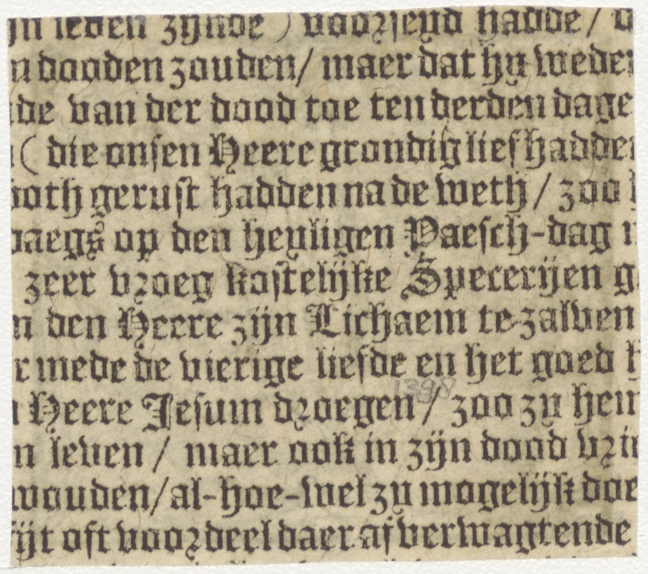 jn leven zijnde ) voorseyd hadde /
dooden zouden / maer dat hy weder
de van der dood toe ten derden dage
( die onsen Heere grondig lief hadden
oth gerust hadden na de weth / zoo
daegs op den heyligen Paesch-dag
zeer vroeg kostelijke Specerijen g
den Heere zijn Lichaem te zalven
r mede de vierige liefde en het goed h
Heere Jesum droegen / zoo zy hem
n leven / maer ook in zijn dood vri
wouden / al-hoe-wel zy mogelijk doe
ijt oft voordeel daer af verwagtende
1398